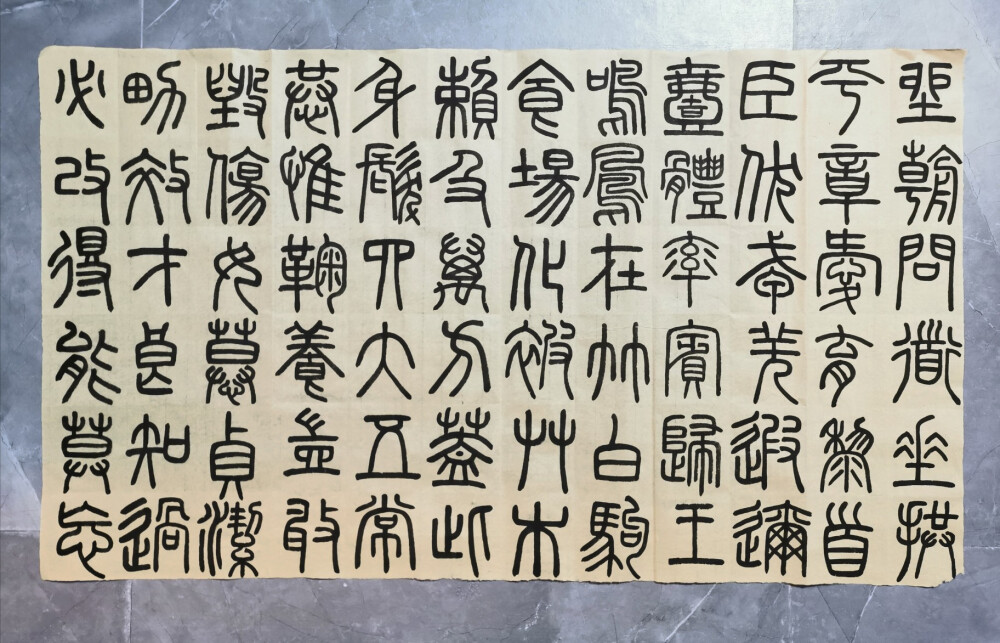 坐朝問道垂拱
平章愛育黎首
臣伏戎羌遐邇
壹體率賓歸王
鳴鳳在竹白駒
食場化被草木
賴及萬方蓋此
身髮四大五常
恭惟鞠養豈敢
毀傷女慕貞潔
男效才良知過
必改得能莫忘